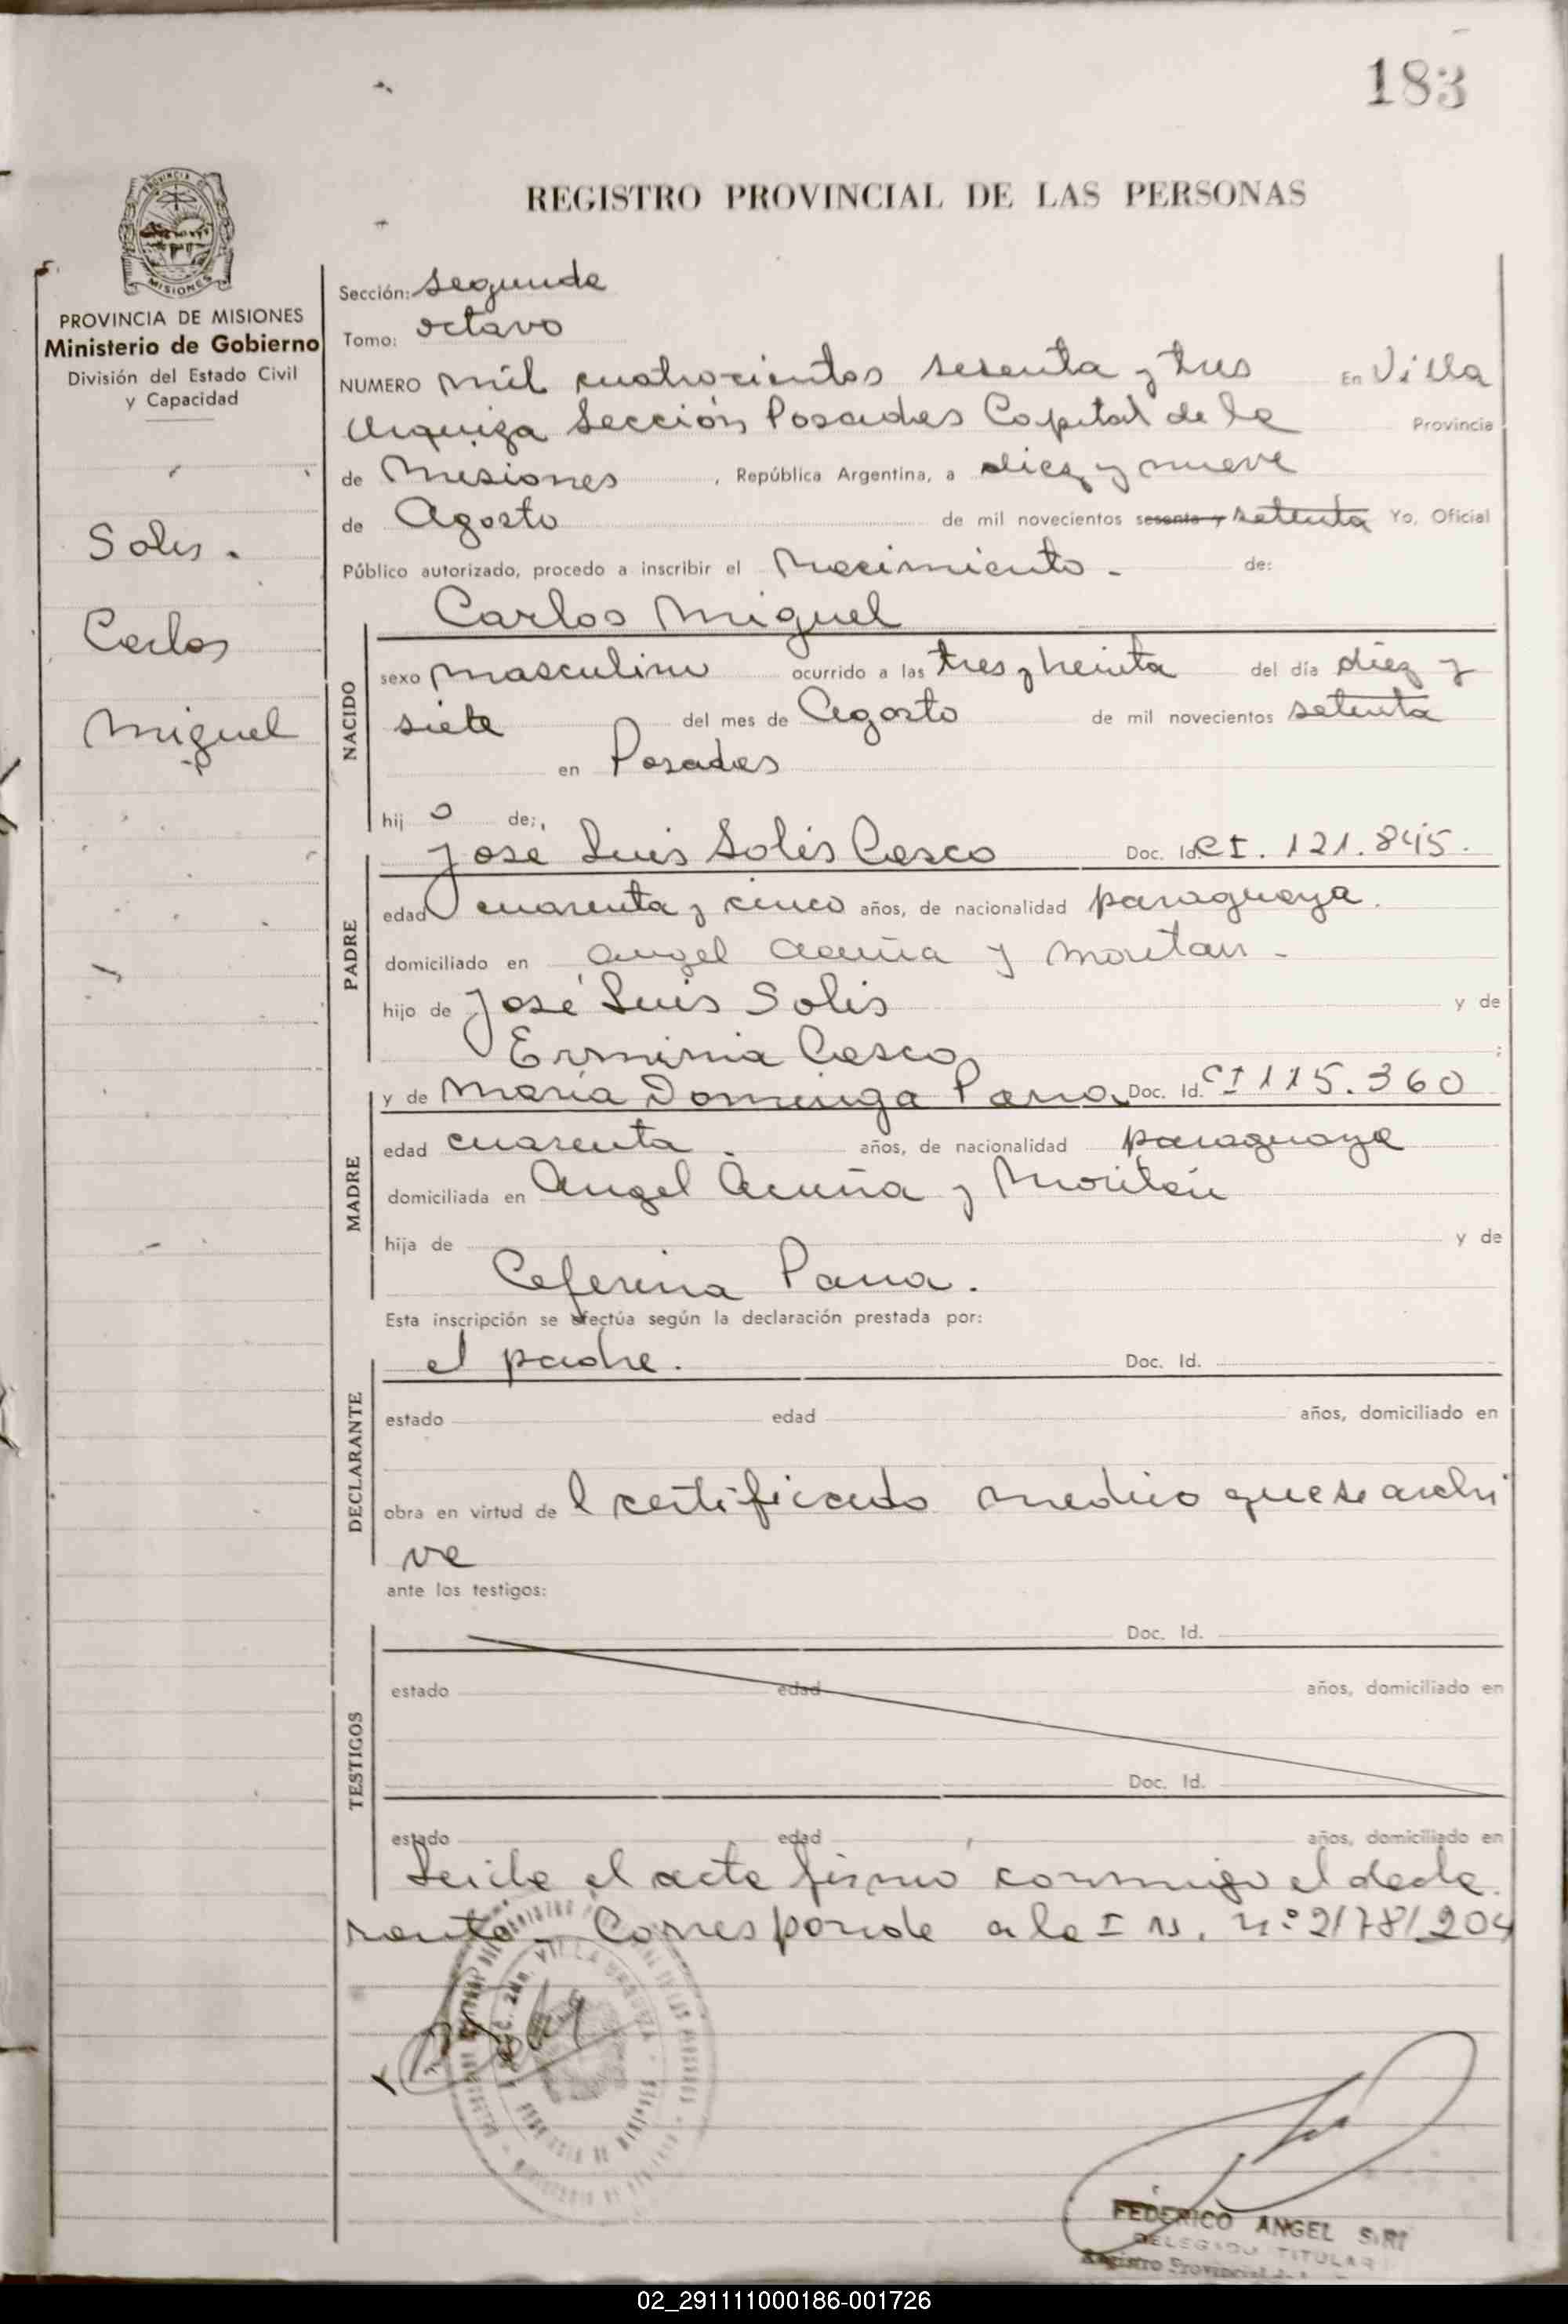 183
REGISTRO PROVINCIAL DE LAS PERSONAS
PROVINCIA DE
MISIONES
PROVINCIA DE MISIONES
Ministerio de Gobierno
División del Estado Civil
y Capacidad
Solis.
Carlos
Miguel
Sección: segunda
Tomo: octavo
NUMERO mil cuatrocientos sesenta y tres En Villa
Urquiza Sección Posadas Capital de la Provincia
de Misiones, República Argentina, a diez y nueve
de Agosto de mil novecientos sesenta y setenta Yo, Oficial
Público autorizado, procedo a inscribir el Nacimiento - de:
Carlos Miguel
NACIDO
sexo masculino ocurrido a las tres y treinta del día diez y
siete del mes de Agosto de mil novecientos setenta
en Posadas
hij o de:
PADRE
José Luis Solis Cesco Doc. Id. CI. 121.845.
edad cuarenta y cinco años, de nacionalidad paraguaya.
domiciliado en Angel Acuña y Moritan -
hijo de José Luis Solis y de
Erminia Cesco;
MADRE
y de Maria Dominga Parra Doc. Id. CI 115.360
edad cuarenta. años, de nacionalidad paraguaya
domiciliada en Angel Acuña y Moritán
hija de y de
Ceferina Parra.
Esta inscripción se efectúa según la declaración prestada por:
DECLARANTE
el padre. Doc. Id.
estado edad años, domiciliado en
obra en virtud de l certificado medico que se archi
va
ante los testigos:
TESTIGOS
Doc. Id.
estado edad años, domiciliado en
Doc. Id.
estado edad años, domiciliado en
Leida el acta firmó conmigo el decla
rante - Corresponde a la I n. n:º 2178/204
SECC. 2da. VILLA URQUIZA
PROVINCIA DE MISIONES
FEDERICO ANGEL SIRI
DELEGADO TITULAR
Registro Provincial de
02_291111000186-001726